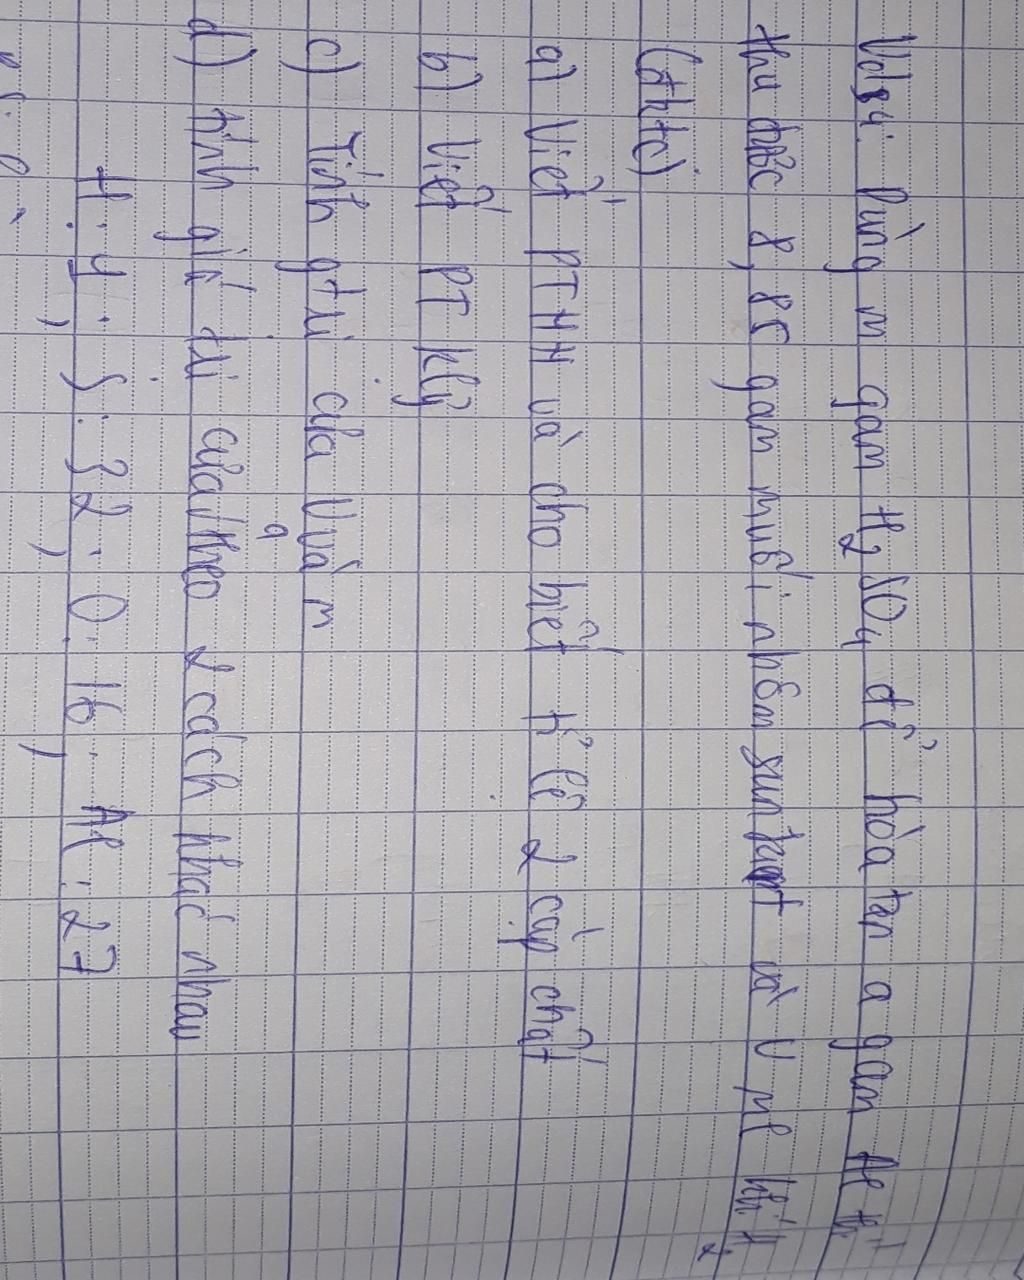 Dùng m gam H2SO4 để hòa tan a gam Al th
thu được 8,85 gam muối nhôm sunfat và V ml khí H2
(đktc)
a) Viết PTHH và cho biết tỉ lệ 2 cặp chất
b) Viết PT Klg
c) Tính gtri của V và m
d) tính giá trị của a theo 2 cách khác nhau
H: 4; S: 32; O: 16; Al: 27